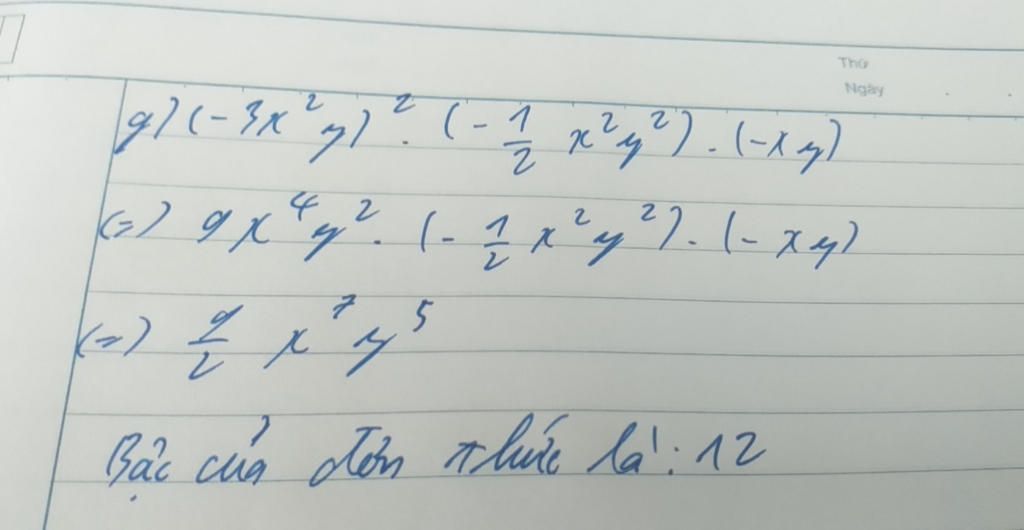 Thứ
Ngày
g) (-3x²y)² . (-1/2 x²y²) . (-xy)
(=) 9x⁴y² . (-1/2 x²y²) . (-xy)
(=) 9/2 x⁷y⁵
Bậc của đơn thức là: 12